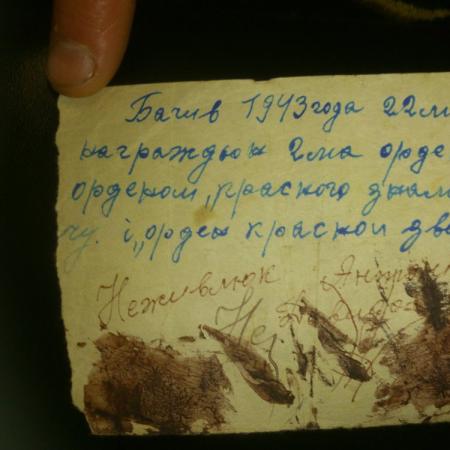 Бачив 1943 года 22 ми
награждюн 2ма орде
орденом „красного знам
чу. і „орден красной зве
Неживлюк Антон
Не